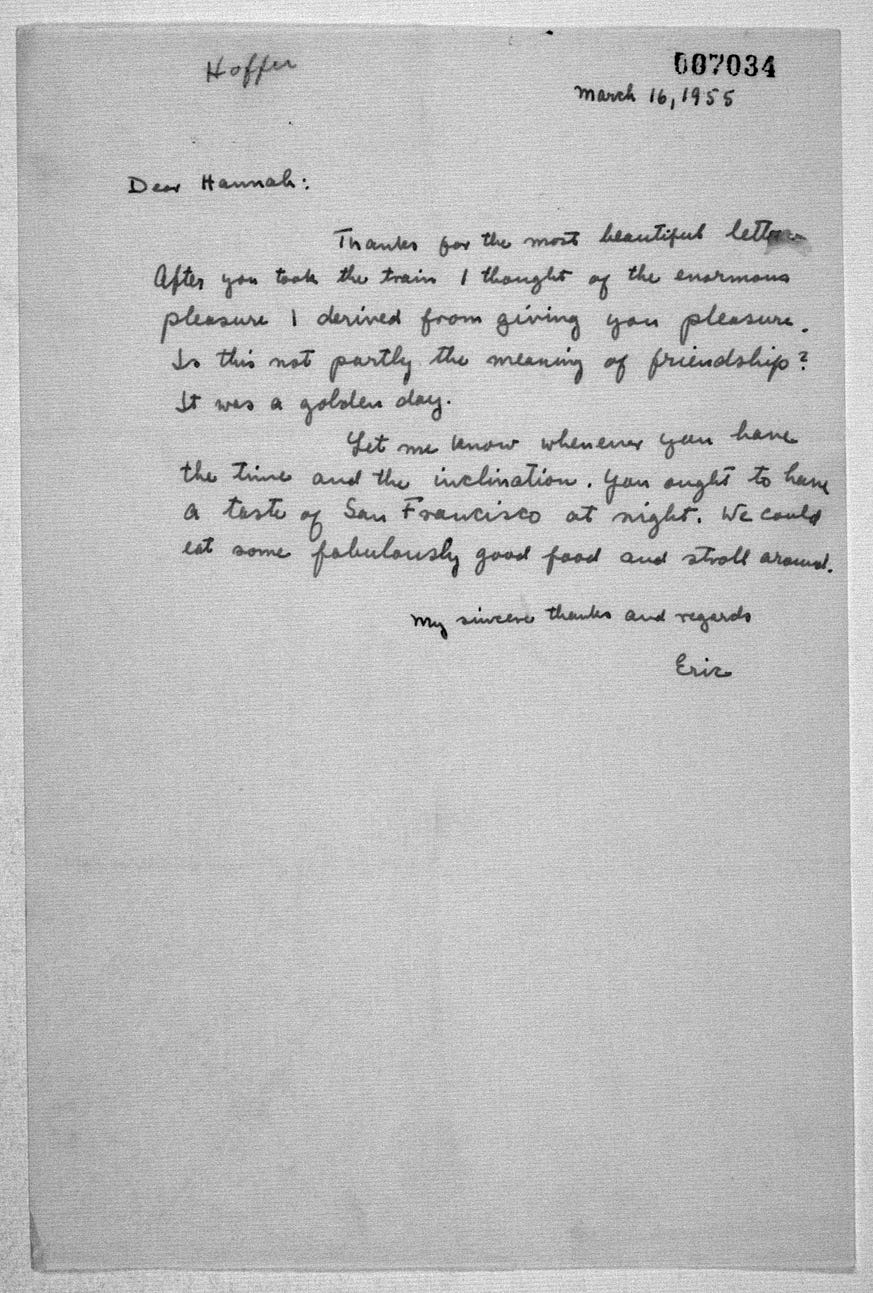 Hoffer
007034
March 16, 1955
Dear Hannah:
Thanks for the most beautiful letter
After you took the train I thought of the enormous
pleasure I derived from giving you pleasure.
Is this not partly the meaning of friendship?
It was a golden day.
Let me know whenever you have
the time and the inclination. You ought to have
a taste of San Francisco at night. We could
eat some fabulously good food and stroll around.
My sincere thanks and regards
Eric